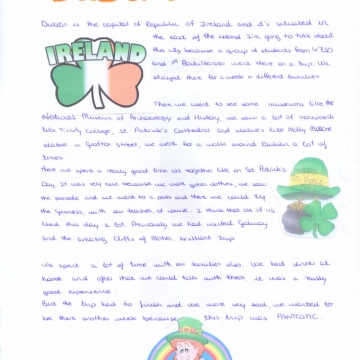 DUBLIN
Dublin is the capital of Republic of Ireland and it's situated in
the east of the island. I'm going to talk about
this city because a group of students from 4º ESO
and 1st Bachillerato went there on a trip. We
stayed there for a week in different families.
IRELAND
There we went to see some museums like the
Natural Museum of Archaeology and History, we saw a lot of monuments
like Trinity College, St Patrick's Cathedral and statues like Molly Malone
statue in Grafton street, we went for a walk around Dublin a lot of
times.
There we spent a really good time all together like on St. Patrick's
Day. It was very nice because we wore green clothes, we saw
the parade and we went to a pub and there we could try
the Guinness, with our teachers, of course. I think that all of us
liked this day a lot. Previously we had visited Galway
and the amazing Cliffs of Moher, brilliant trip.
We spent a lot of time with our families also. We had dinner at
home and after that we could talk with them, it was a really
good experience.
But the trip had to finish and we were very sad, we wanted to
be there another week because this trip was FANTASTIC.